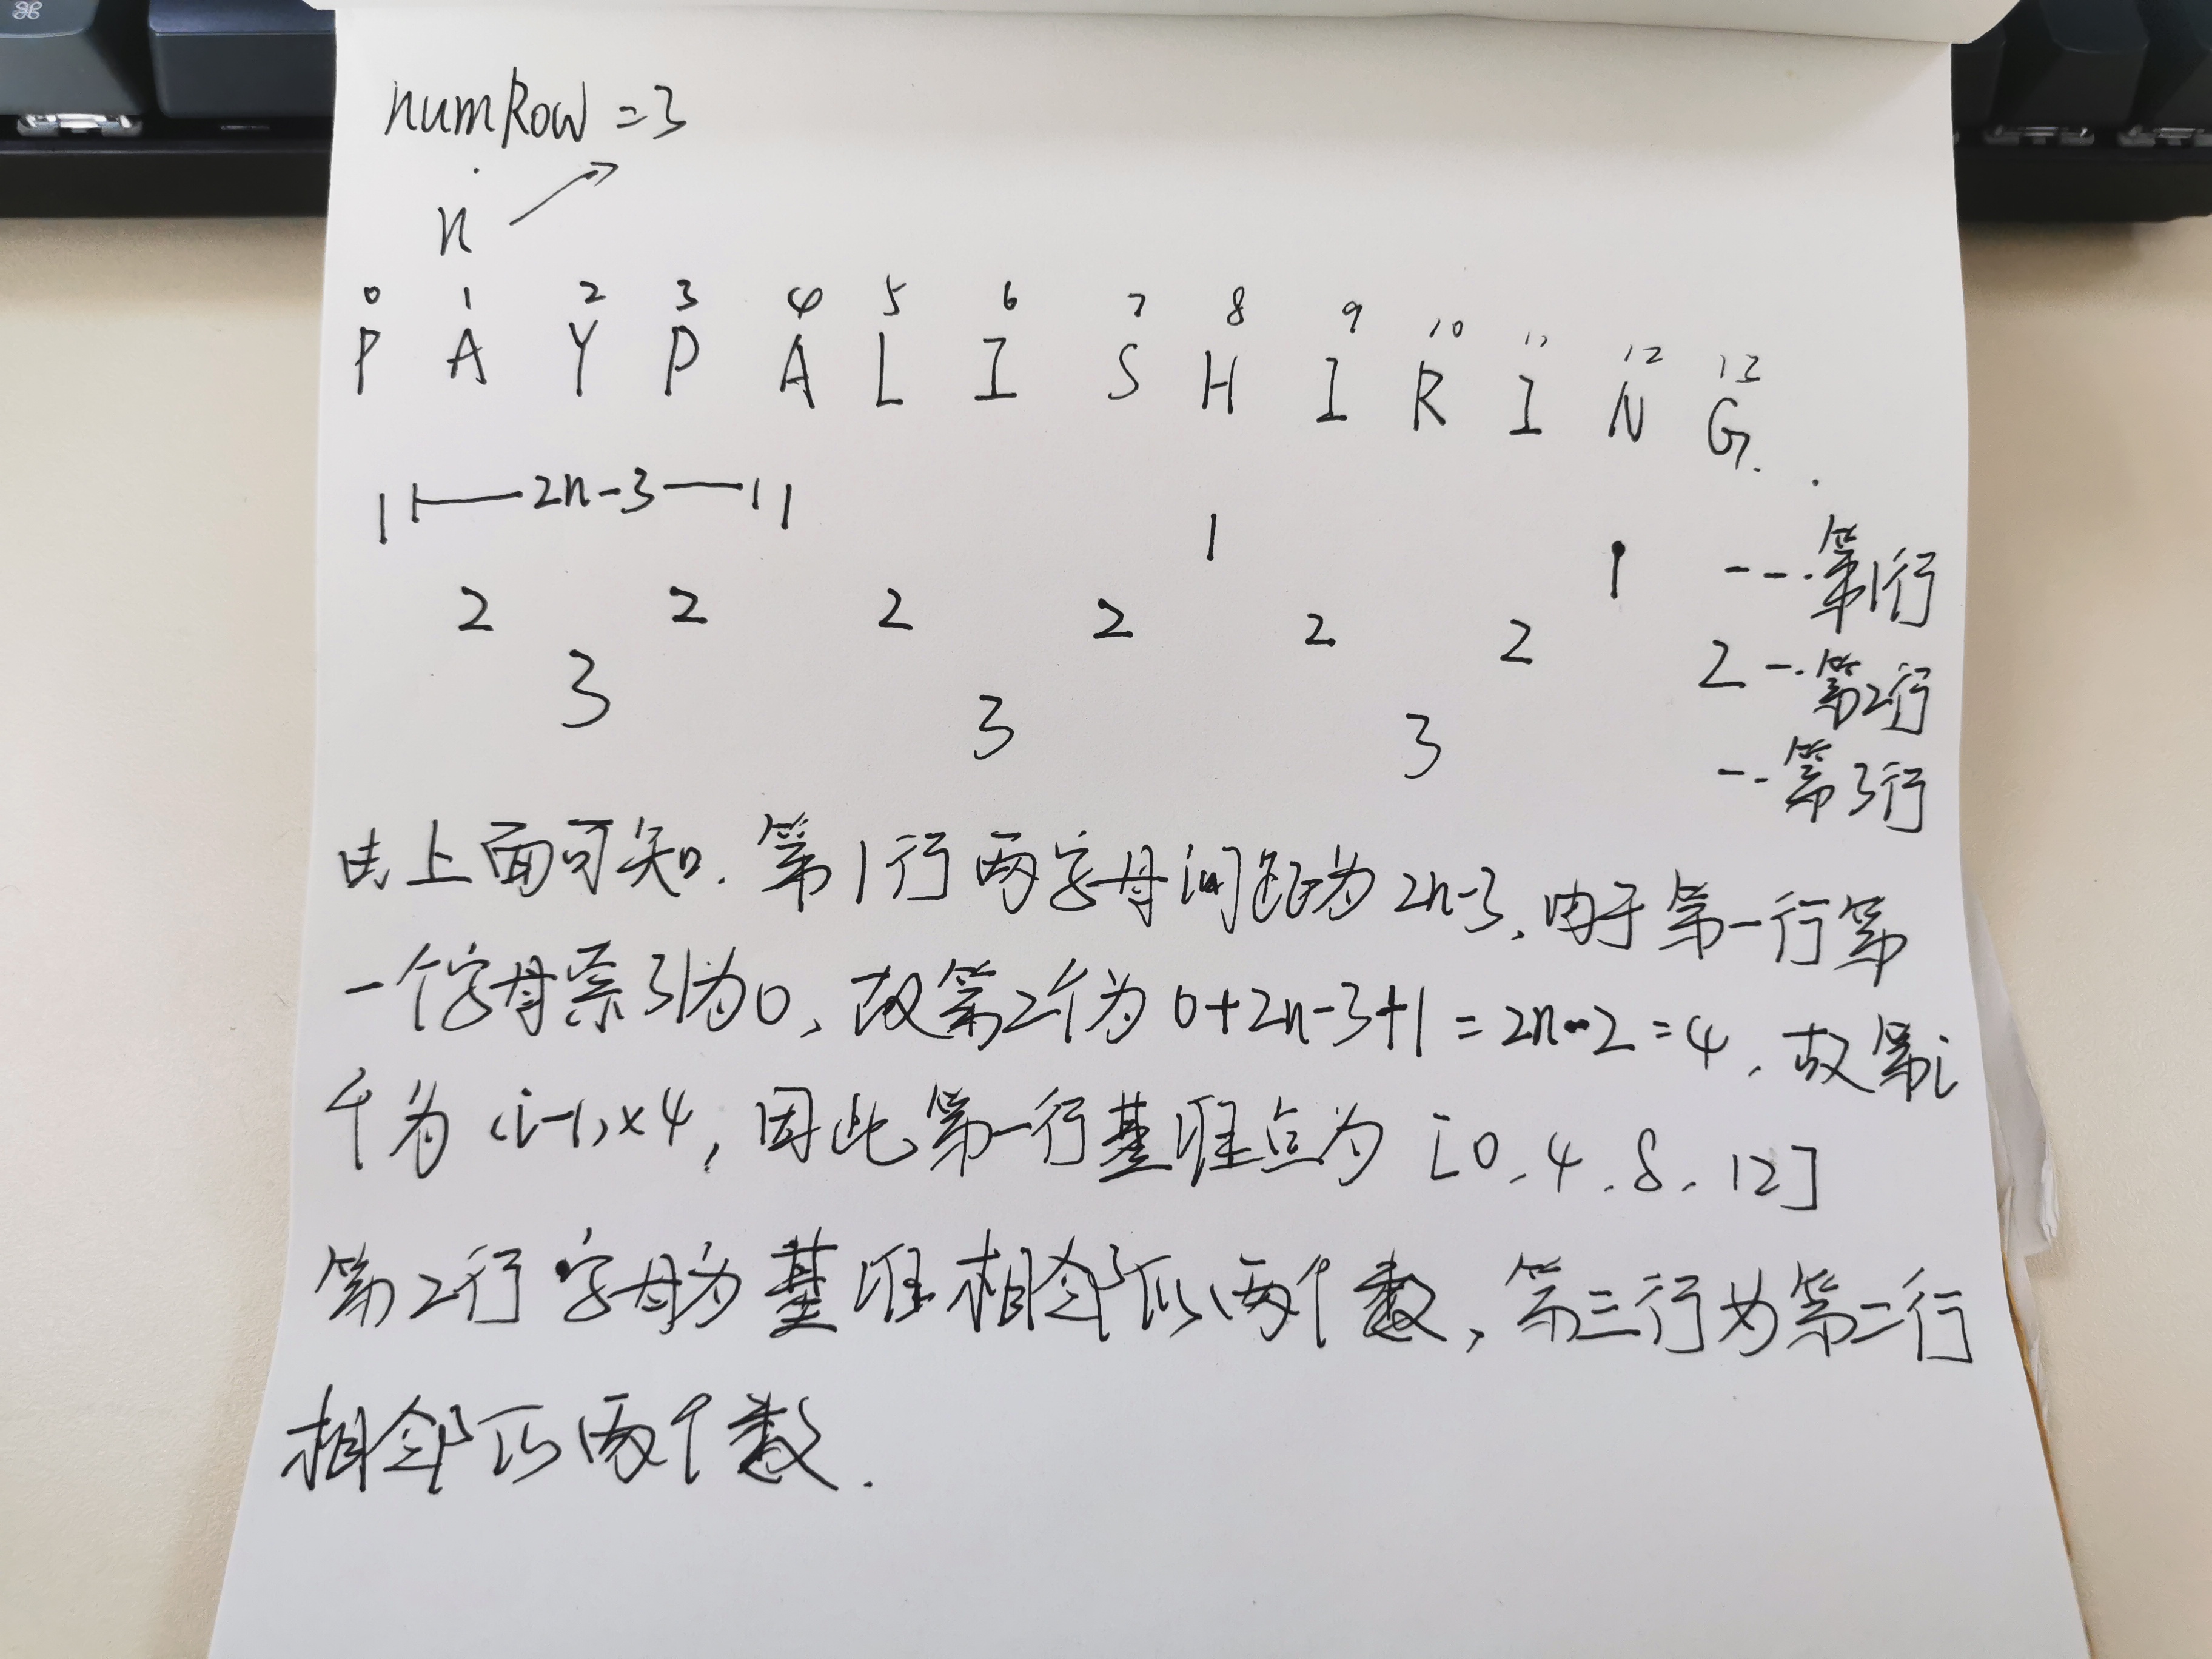 numRow = 3
n
0 1 2 3 4 5 6 7 8 9 10 11 12 13
P A Y P A L I S H I R I N G
1 2n-3 1 1 1 --- 第1行
2 2 2 2 2 2 2 -- 第2行
3 3 3 -- 第3行
由上面可知. 第1行两字母间距为2n-3, 由于第一行第
一个字母索引为0, 故第2个为 0+2n-3+1 = 2n-2 = 4, 故第i
个为 (i-1)×4, 因此第一行基准点为 [0, 4, 8, 12]
第2行字母为基准相邻的两个数, 第三行为第二行
相邻的两个数.